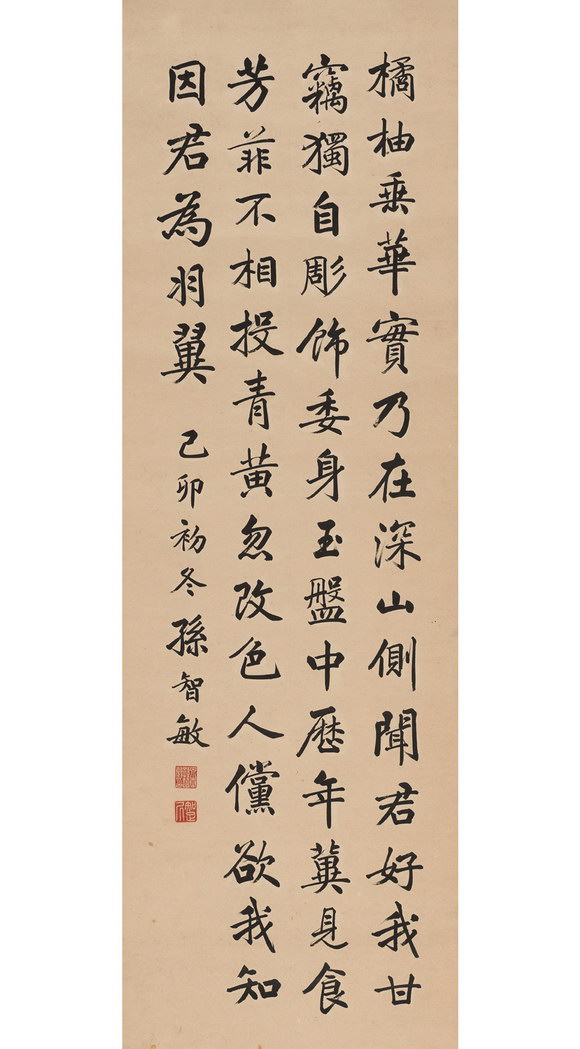 橘柚乗華實乃在深山側聞君好我甘
竊獨自彫飾委身玉盤中歴年冀見食
芳菲不相投青黄忽改色人儻欲我知
因君為羽翼
己卯初冬孫智敏